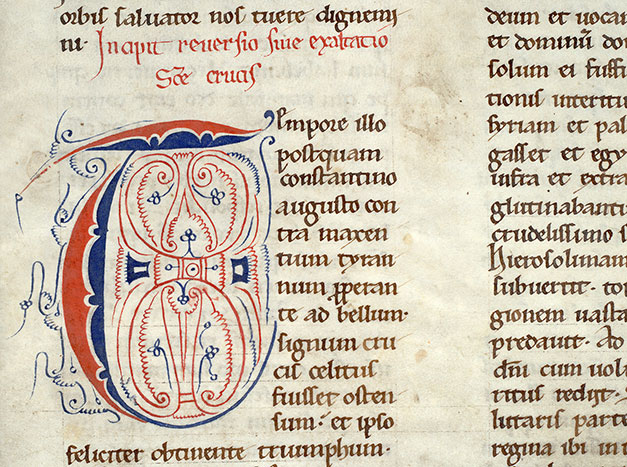 orbis saluator nos tuere dignemi
ni· Incipit reuersio siue exaltatio
Sc̄e crucis
Tempore illo
postquam
constantino
augusto con
tra maxen
tium tyran
num ꝓperan
te ad bellum·
signum cru
cis celitus
fuisset osten
sum· et ipso
feliciter obtinente triumphum·
deum et uocari
et dominū
solum ei
tionis interitu
syriam et pal
gasset et egy
infra et extra
glutinabant
crudelissimo s
hierosolimam
subuertit· 
gionem uasta
predauit· Ad
dn̄i cum
ritus redigi·
lutaris parte
regina ibi in